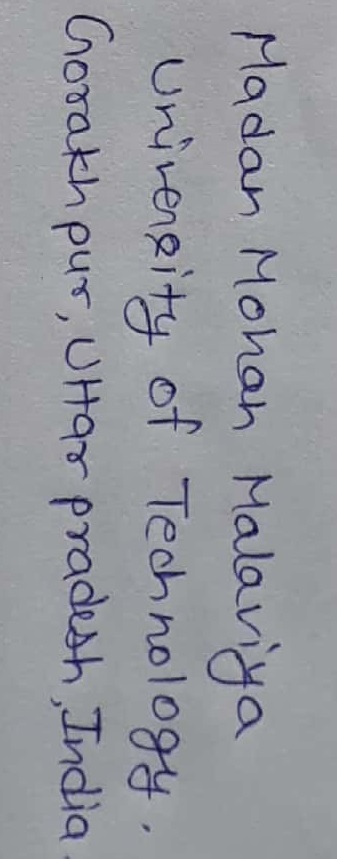 Madan Mohan Malaviya
University of Technology.
Gorakhpur, Uttar pradesh, India.